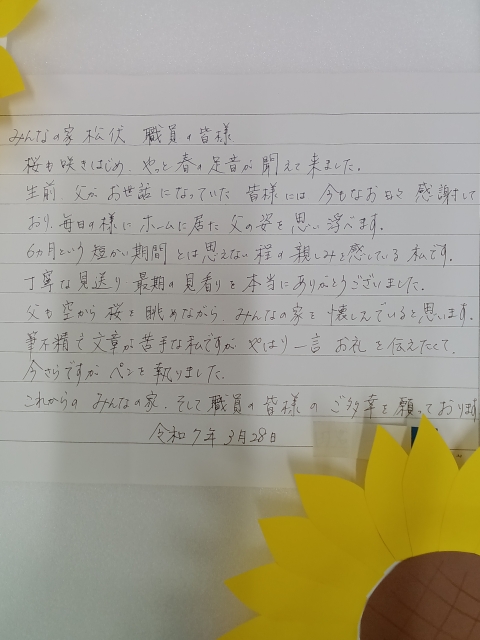 みんなの家 松伏 職員の皆様
桜も咲きはじめ、やっと春の足音が聞えて来ました。
生前 父がお世話になっていた 皆様には 今もなお日々 感謝して
おり、毎日の様に ホームに居た 父の姿を思い浮べます。
6カ月という 短かい期間 とは思えない程の親しみを感じている 私です。
丁寧な見送り 最期の見看りを 本当にありがとうございました。
父も空から 桜を 眺めながら、みんなの家を 懐しんでいると思います。
筆不精で 文章が苦手な私ですが やはり一言 お礼を伝えたくて、
今さらですが ペンを執りました。
これからの みんなの家、そして職員の皆様の ご多幸を願っております
令和7年3月28日